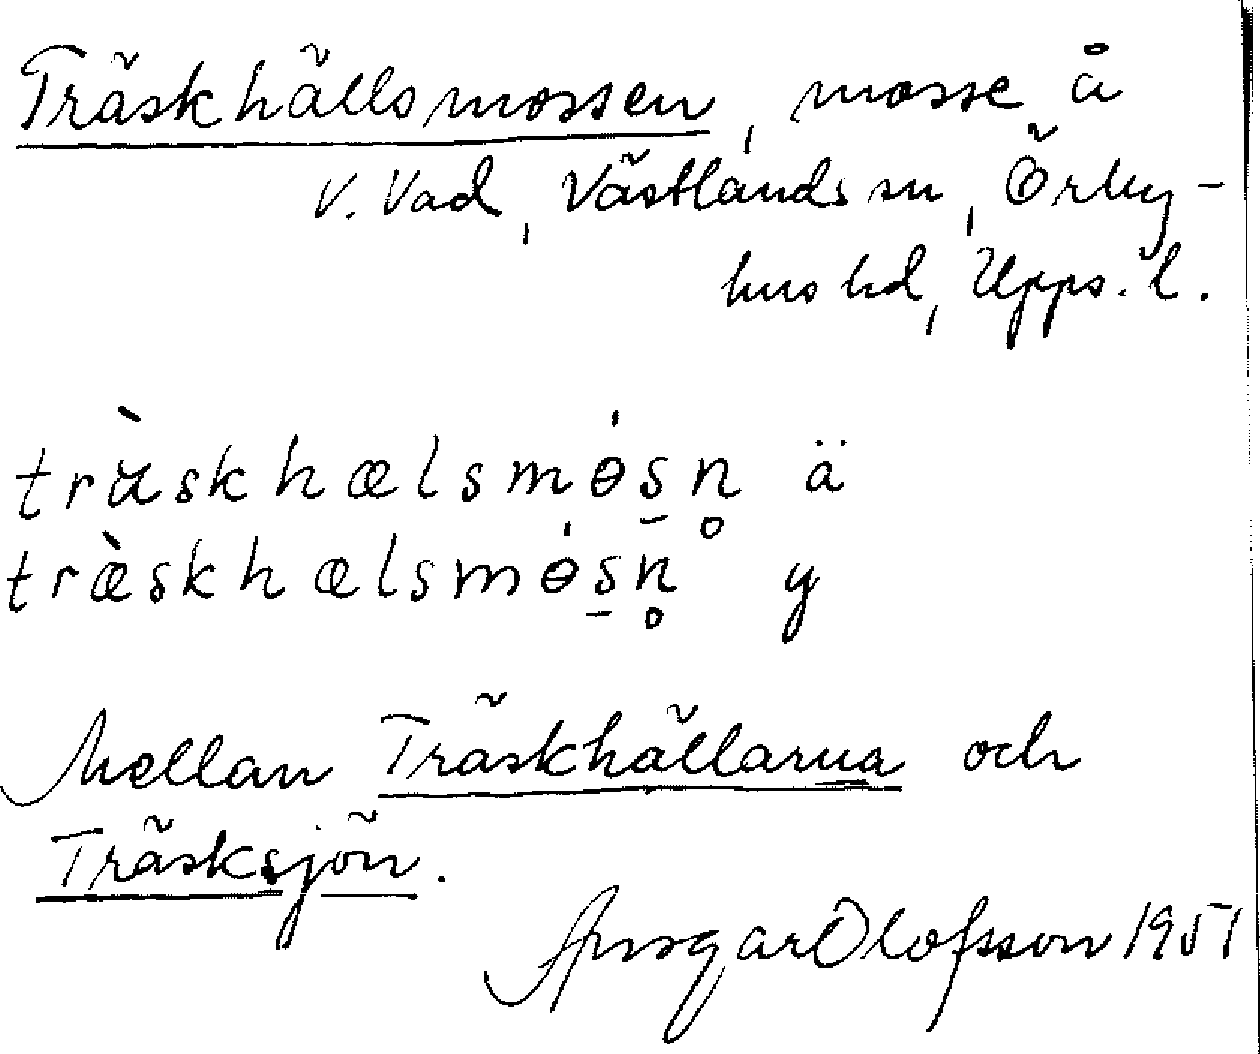 Träskhällsmossen, mosse å
V. Vad, Västlands sn, Örby-
hus hd, Upps. l.
trὰskhælsmɵ́s̠n̥ ä
træ̀skhælsmɵ́s̠n̥ y
Mellan Träskhällarna och
Träsksjön.
Ansgar Olofsson 1951